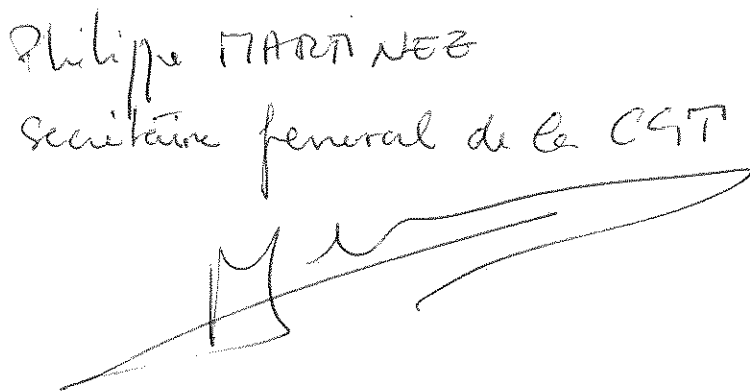 Philippe MARTINEZ
Secrétaire general de la CGT